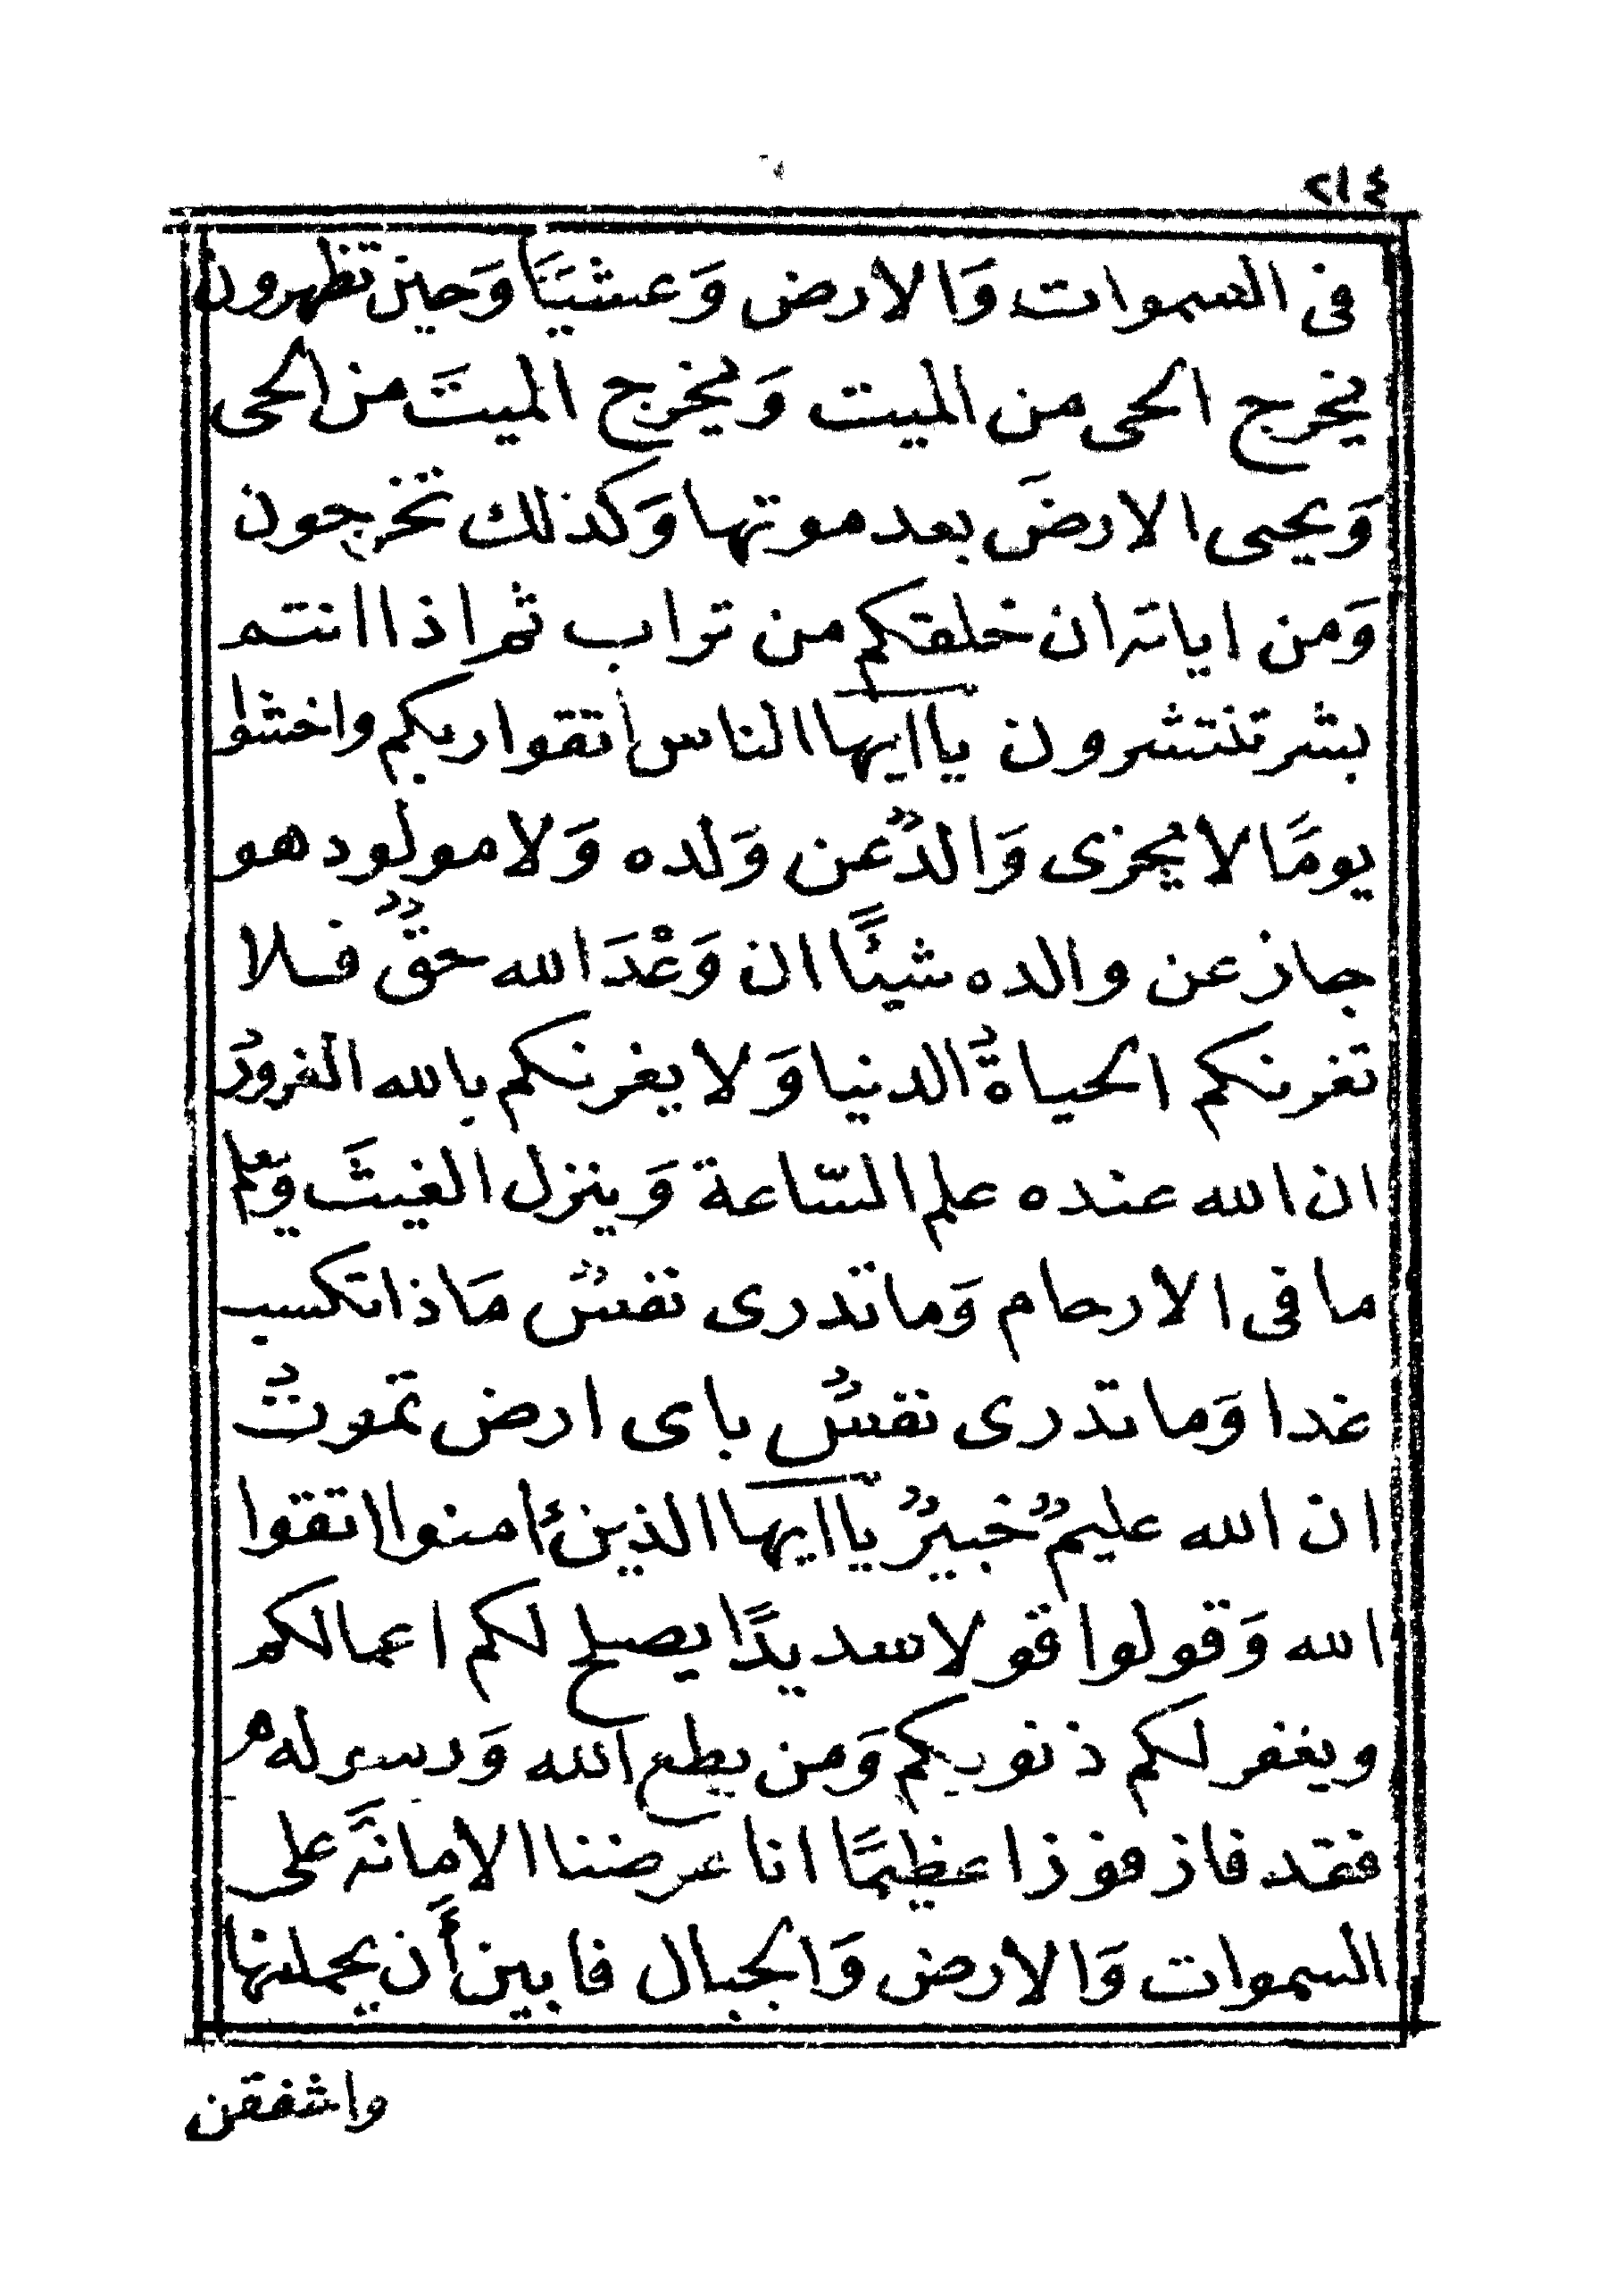 ٢١٤
فى السموات وَالارض وَعشيَيَّا وَحين تظهرون
يخرج الحى من الميت وَيخرج الميتَ من الحى
وَيحيى الارضَ بعد موتها وَكذلك تخرجون
وَمن اياته ان خلقكم من تراب ثم اذا انتم
بشر تنتشرون ياايها الناس اتقوا ربكم واخشوا
يومًا لا يُجزى وَالدٌ عن وَلده وَلا مولود هو
جاز عن والده شيئًا ان وَعْدَ الله حقٌ فلا
تغرنكم الحياةُ الدنيا وَلا يغرنكم بالله الغرورُ
ان الله عنده علم السّاعة وَينزل الغيثَ وَيعلم
ما فى الارحام وَما تدرى نفسٌ مَاذا تكسب
غدا وَما تدرى نفسٌ باى ارض تموتُ
ان الله عليمٌ خبيرٌ ياايها الذين ءامنوا اتقوا
الله وَقولوا قولا سديدًا يصلح لكم اعمالكم
ويغفر لكم ذنوبكم وَمن يطع الله وَرسوله
فقد فاز فوزا عظيمًا انا عرضنا الامانةَ على
السموات وَالارض وَالجبال فابين أَن يحملنها
واشفقن